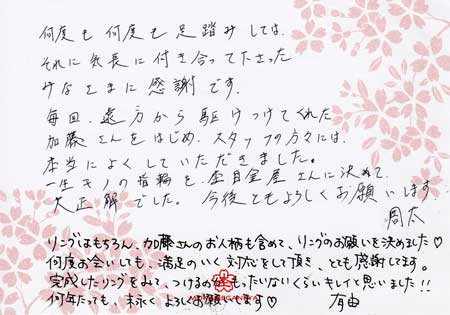 何度も何度も足踏みしては、
それに気長に付き合って下さった
みなさまに感謝です。
毎回、遠方から駆けつけてくれた
加藤さんをはじめ、スタッフの方々には、
本当によくしていただきました。
一生モノの指輪を、杢目金屋さんに決めて、
大正解でした。今後ともよろしくお願いします。
周太
リングはもちろん、加藤さんのお人柄も含めて、リングのお願いを決めました♡
何度お会いしても、満足のいく対応をして頂き、とても感謝してます。
完成したリングをみて、つけるのがもったいないくらいキレイと思いました!!
何年たっても、末永くよろしくお願いします♡ 有由